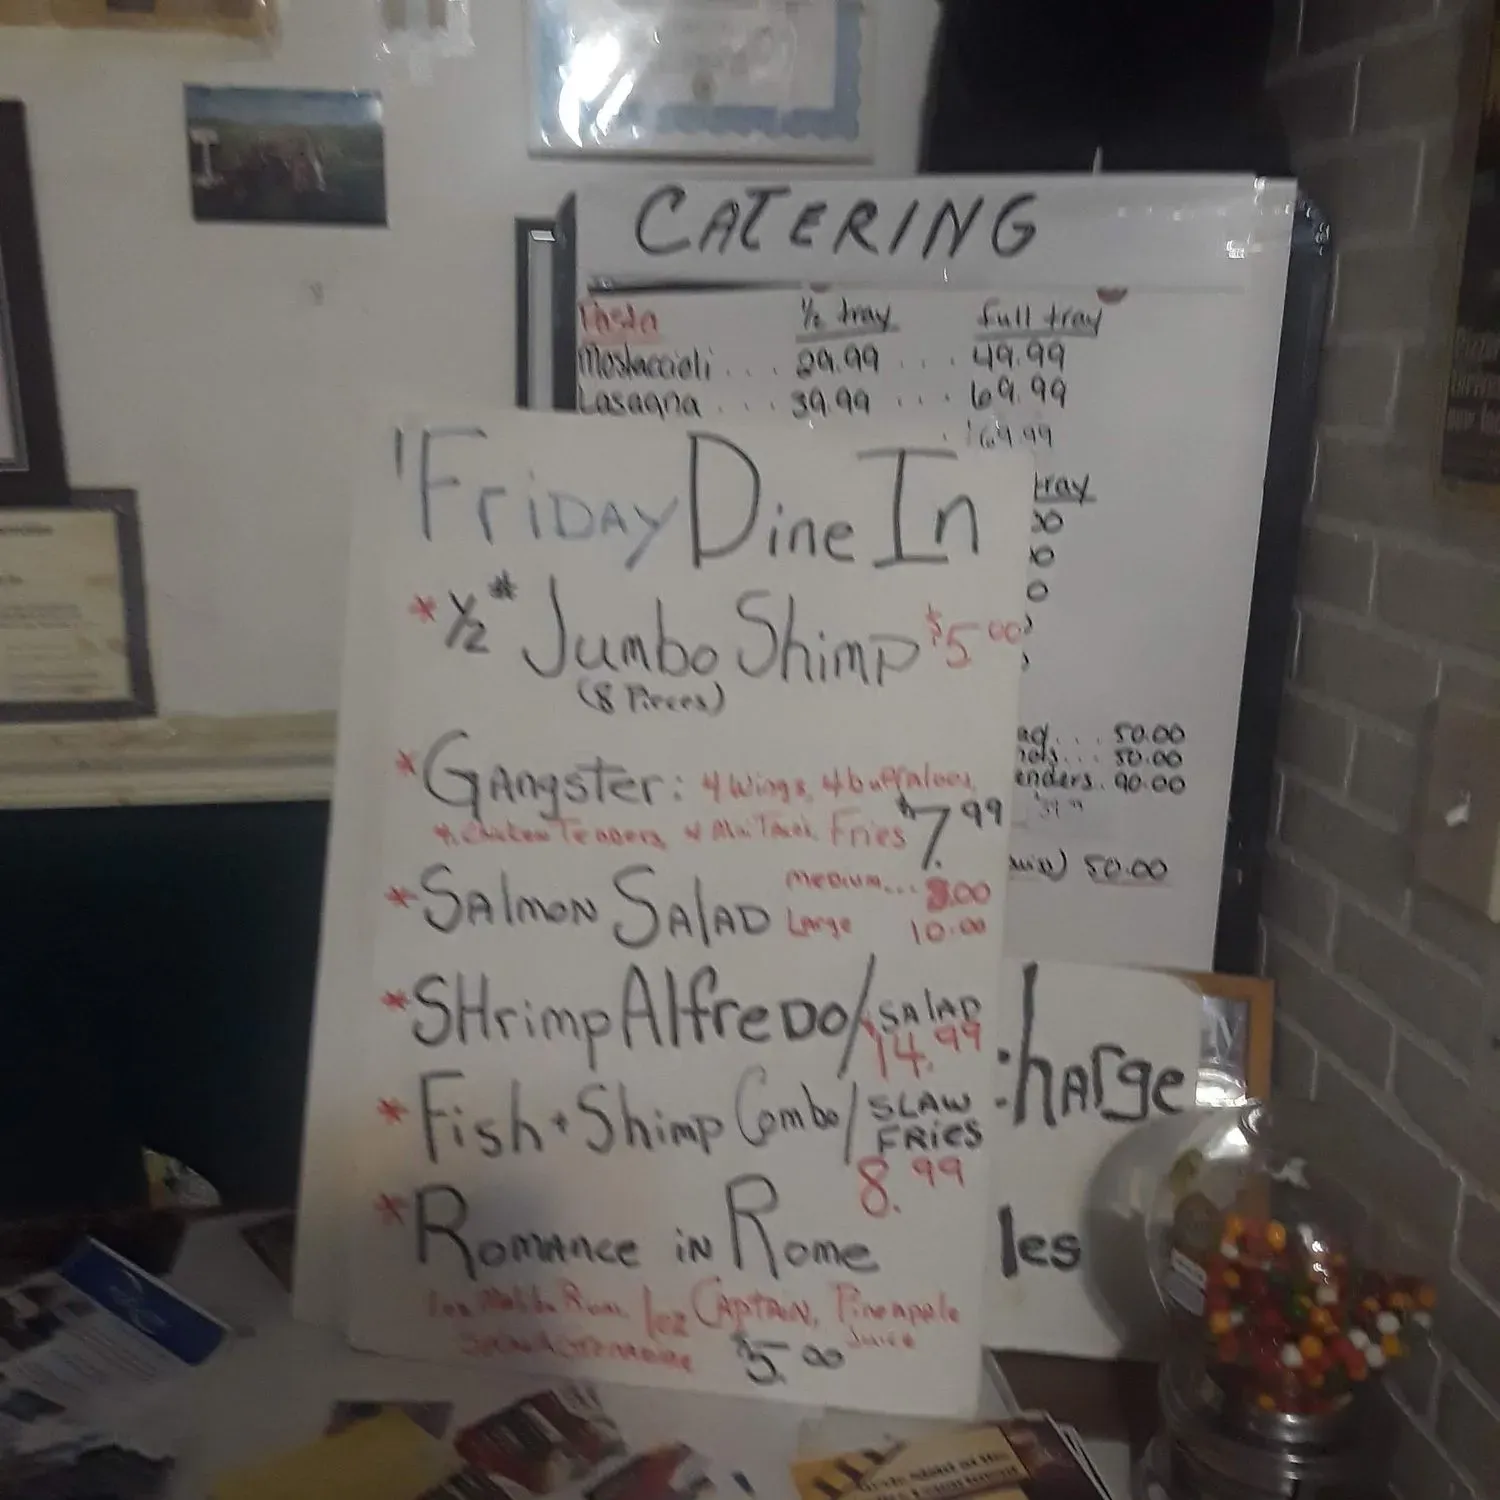 CATERING
Pasta 1/2 tray full tray
Mostaccioli . . . 29.99 . . . 49.99
Lasagna . . . 39.99 . . . 69.99
69.99
tray
ad . . . 50.00
nols... 50.00
enders. 90.00
50.00
Friday Dine In
* 1/2 # Jumbo Shimp $5.00
(8 Pieces)
* Gangster: 4 Wings, 4 buffaloes,
4 Chicken Tenders, Fries $7.99
* Salmon Salad Medium... 8.00
Large 10.00
* SHrimp Alfredo/ SALAD
14.99
* Fish + Shimp Combo/ SLAW
FRies
8.99
* Romance in Rome
1oz Malibu Rum, 1oz CAPTAIN, Pineapple
Juice
$5.00
harge
les